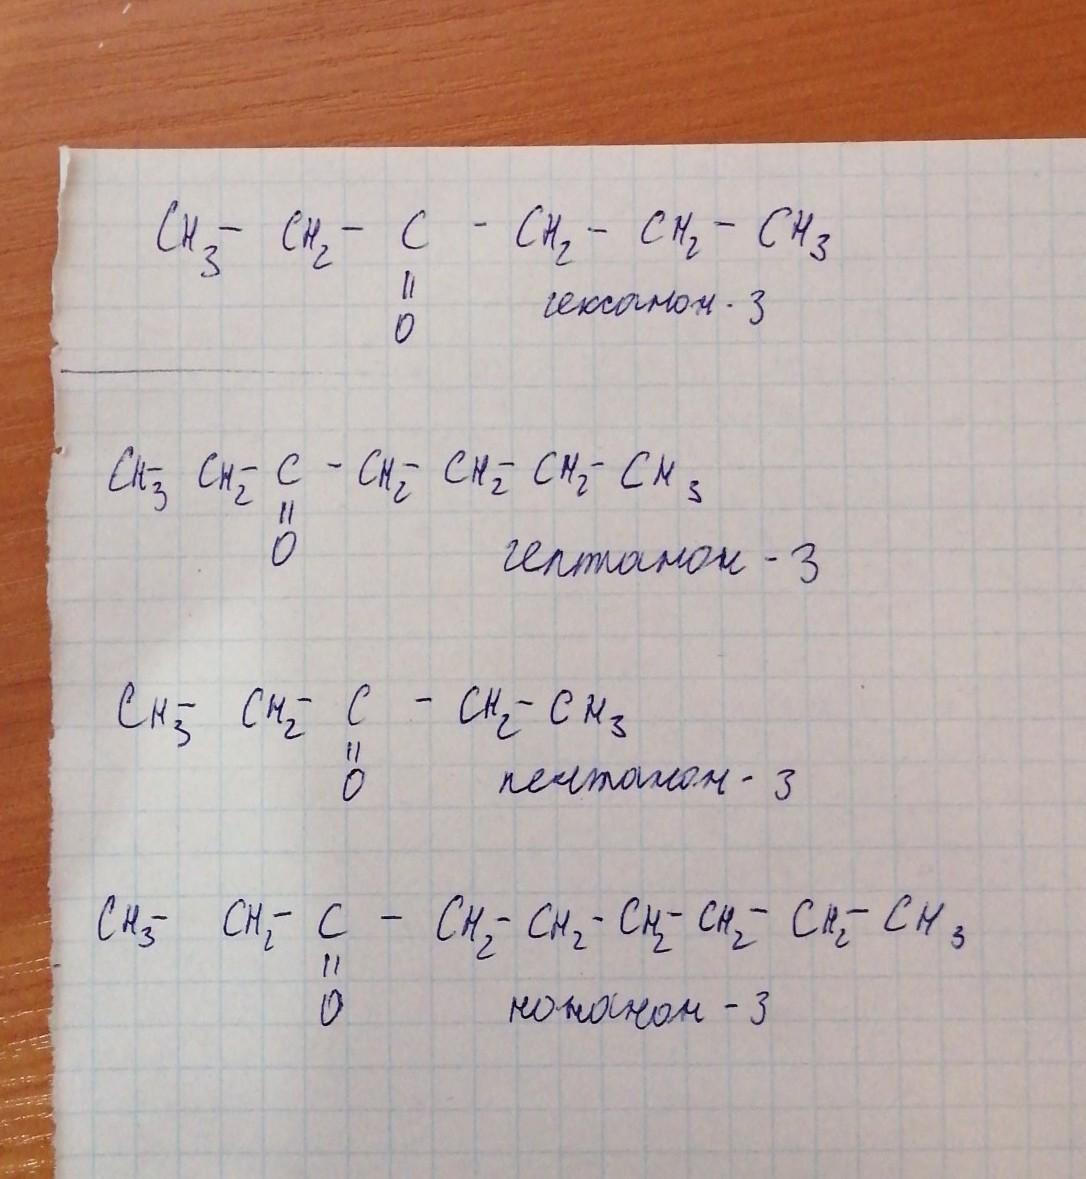 CH₃ - CH₂ - C - CH₂ - CH₂ - CH₃
||
O
гексанон - 3
CH₃ - CH₂ - C - CH₂ - CH₂ - CH₂ - CH₃
||
O
гептанон - 3
CH₃ - CH₂ - C - CH₂ - CH₃
||
O
пентанон - 3
CH₃ - CH₂ - C - CH₂ - CH₂ - CH₂ - CH₂ - CH₂ - CH₃
||
O
нонанон - 3